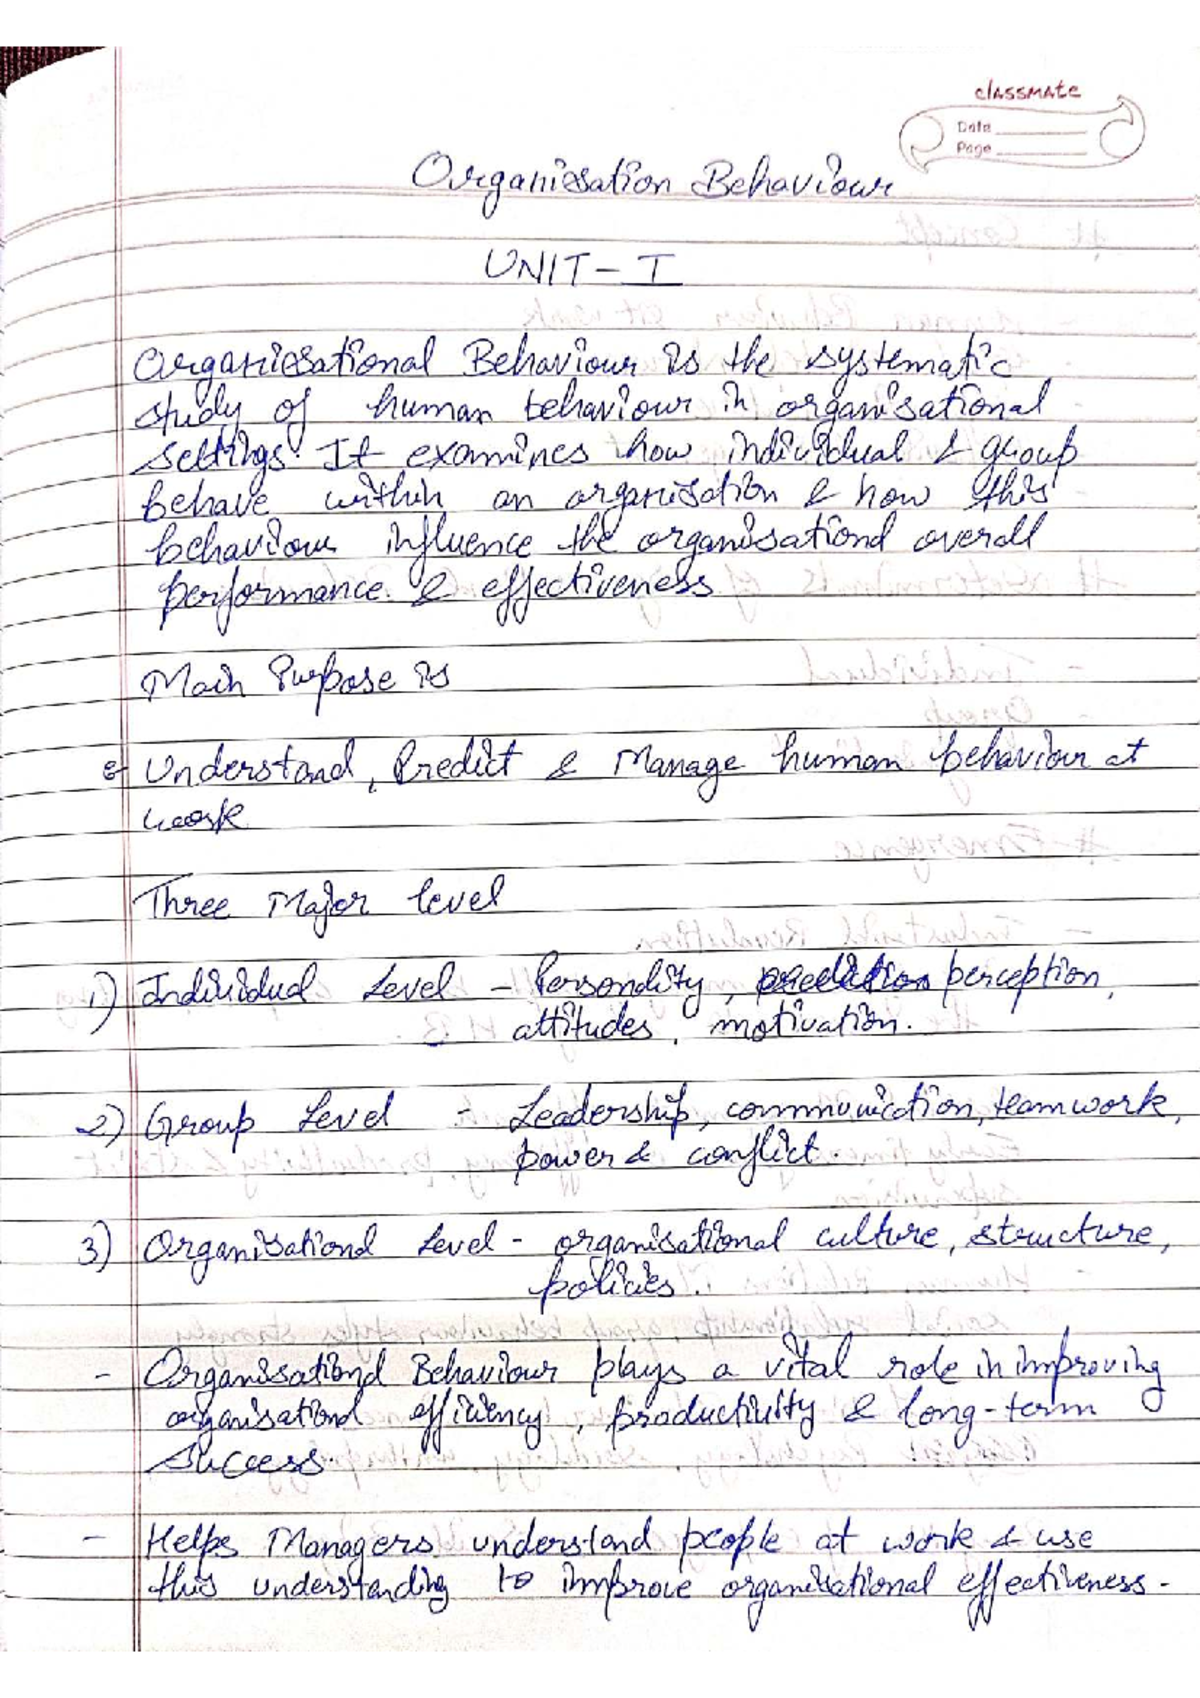 classmate
Date
Page
Organisation Behaviour
UNIT - I
Organisational Behaviour is the systematic
study of human behaviour in organisational
settings. It examines how individual & group
behave within an organisation & how this
behaviour influence the organisational overall
performance & effectiveness
Main Purpose is
Understand, Predict & Manage human behaviour at
work
Three Major level
1) Individual Level - Personality, perception,
attitudes, motivation.
2) Group Level - Leadership, communication, teamwork,
power & conflict.
3) Organisational Level - organisational culture, structure,
policies.
- Organisational Behaviour plays a vital role in improving
organisational efficiency, productivity & long-term
success.
- Helps Managers understand people at work & use
this understanding to improve organisational effectiveness.